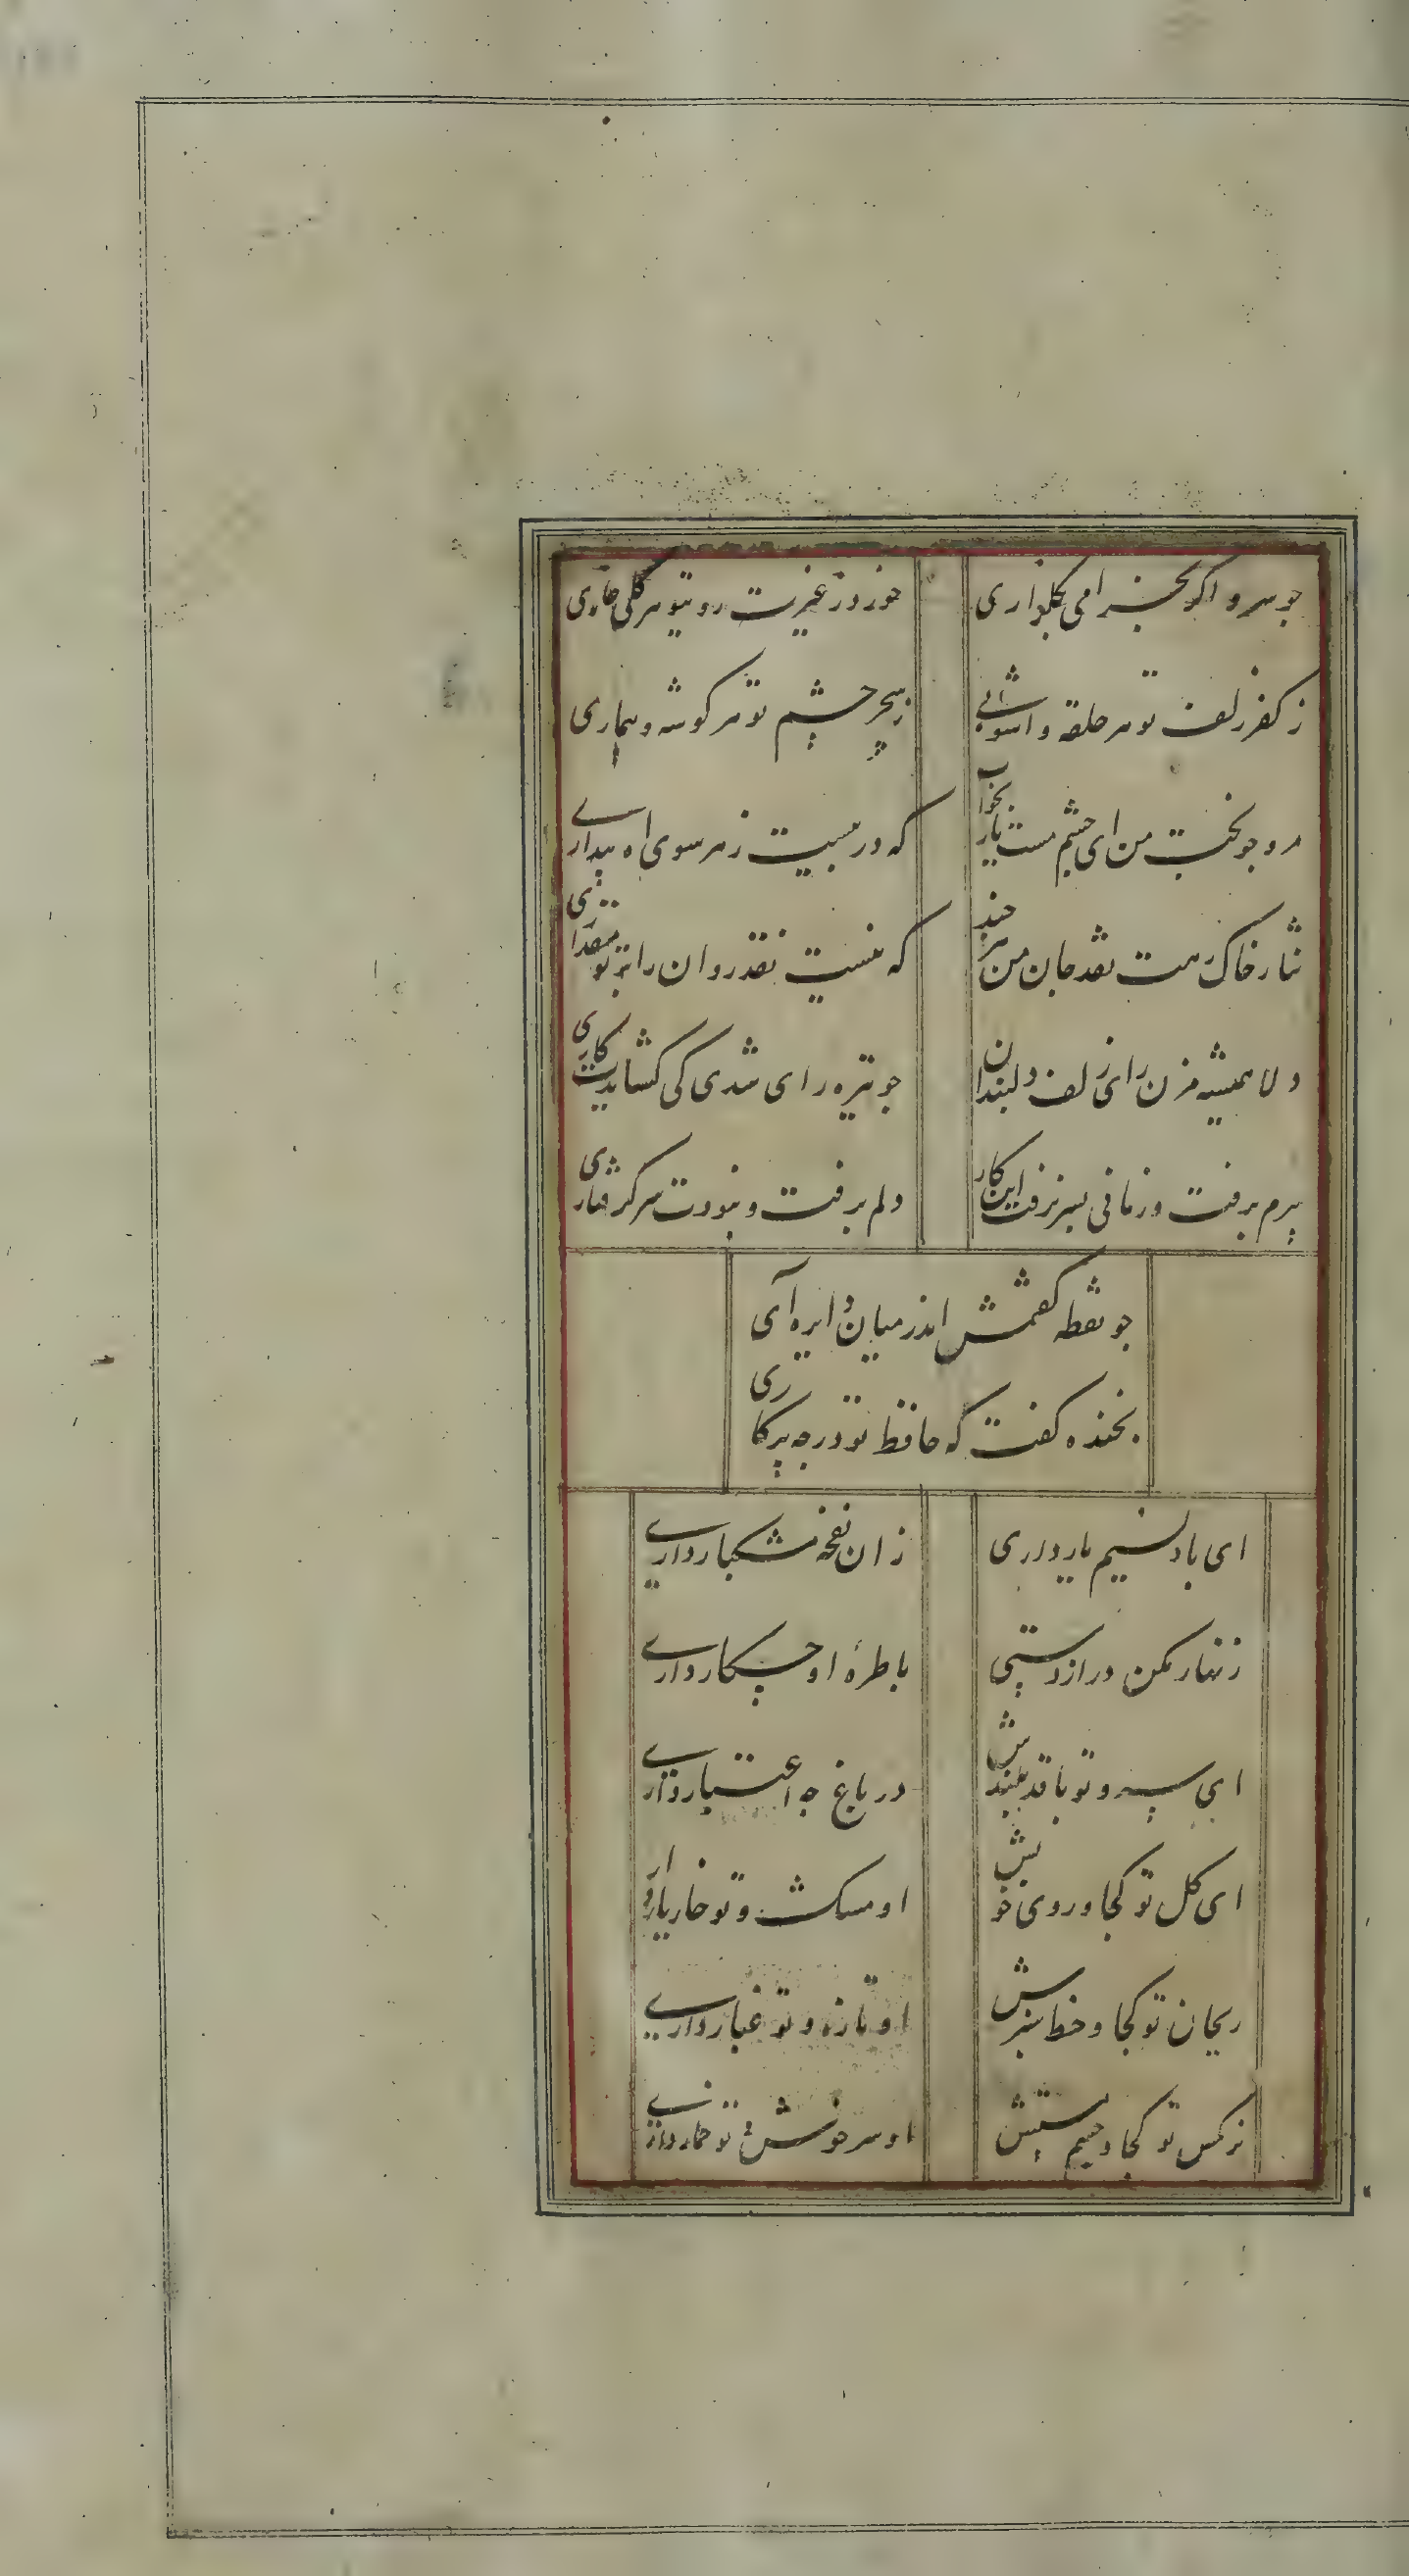 چو سرو اگر بخرامی بگلزاری خورد ز غیرت روی تو هر گلی خاری
ز کفر زلف تو هر حلقه و آشوبی ز سحر چشم تو هر گوشه و بیماری
مرو چو بخت من ای چشم مست یار بخواب که در پیست ز هر سوی اه بیداری
نثار خاک رهت نقد جان من هر چند که نیست نقد روان را بر تو مقداری
دلا همیشه مزن رای زلف دلبندان چو تیره رای شدی کی گشایدت کاری
سرم برفت و زمانی بسر نرفت این کار دلم برفت و نبودت سر گرفتاری
چو نقطه گفتمش اندر میان دایره آی
بخنده گفت که حافظ تو در چه پرگاری
ای باد نسیم یار داری زان نفخه مشکبار داری
زنهار مکن دراز دستی با طره او چکار داری
ای سرو تو با قد بلندش در باغ چه اعتبار داری
ای گل تو کجا و روی خوبش او مشک و تو خار بار داری
ریحان تو کجا و خط سبزش او تازه و تو غبار داری
نرگس تو کجا و چشم مستش او سرخوش و تو خمار داری